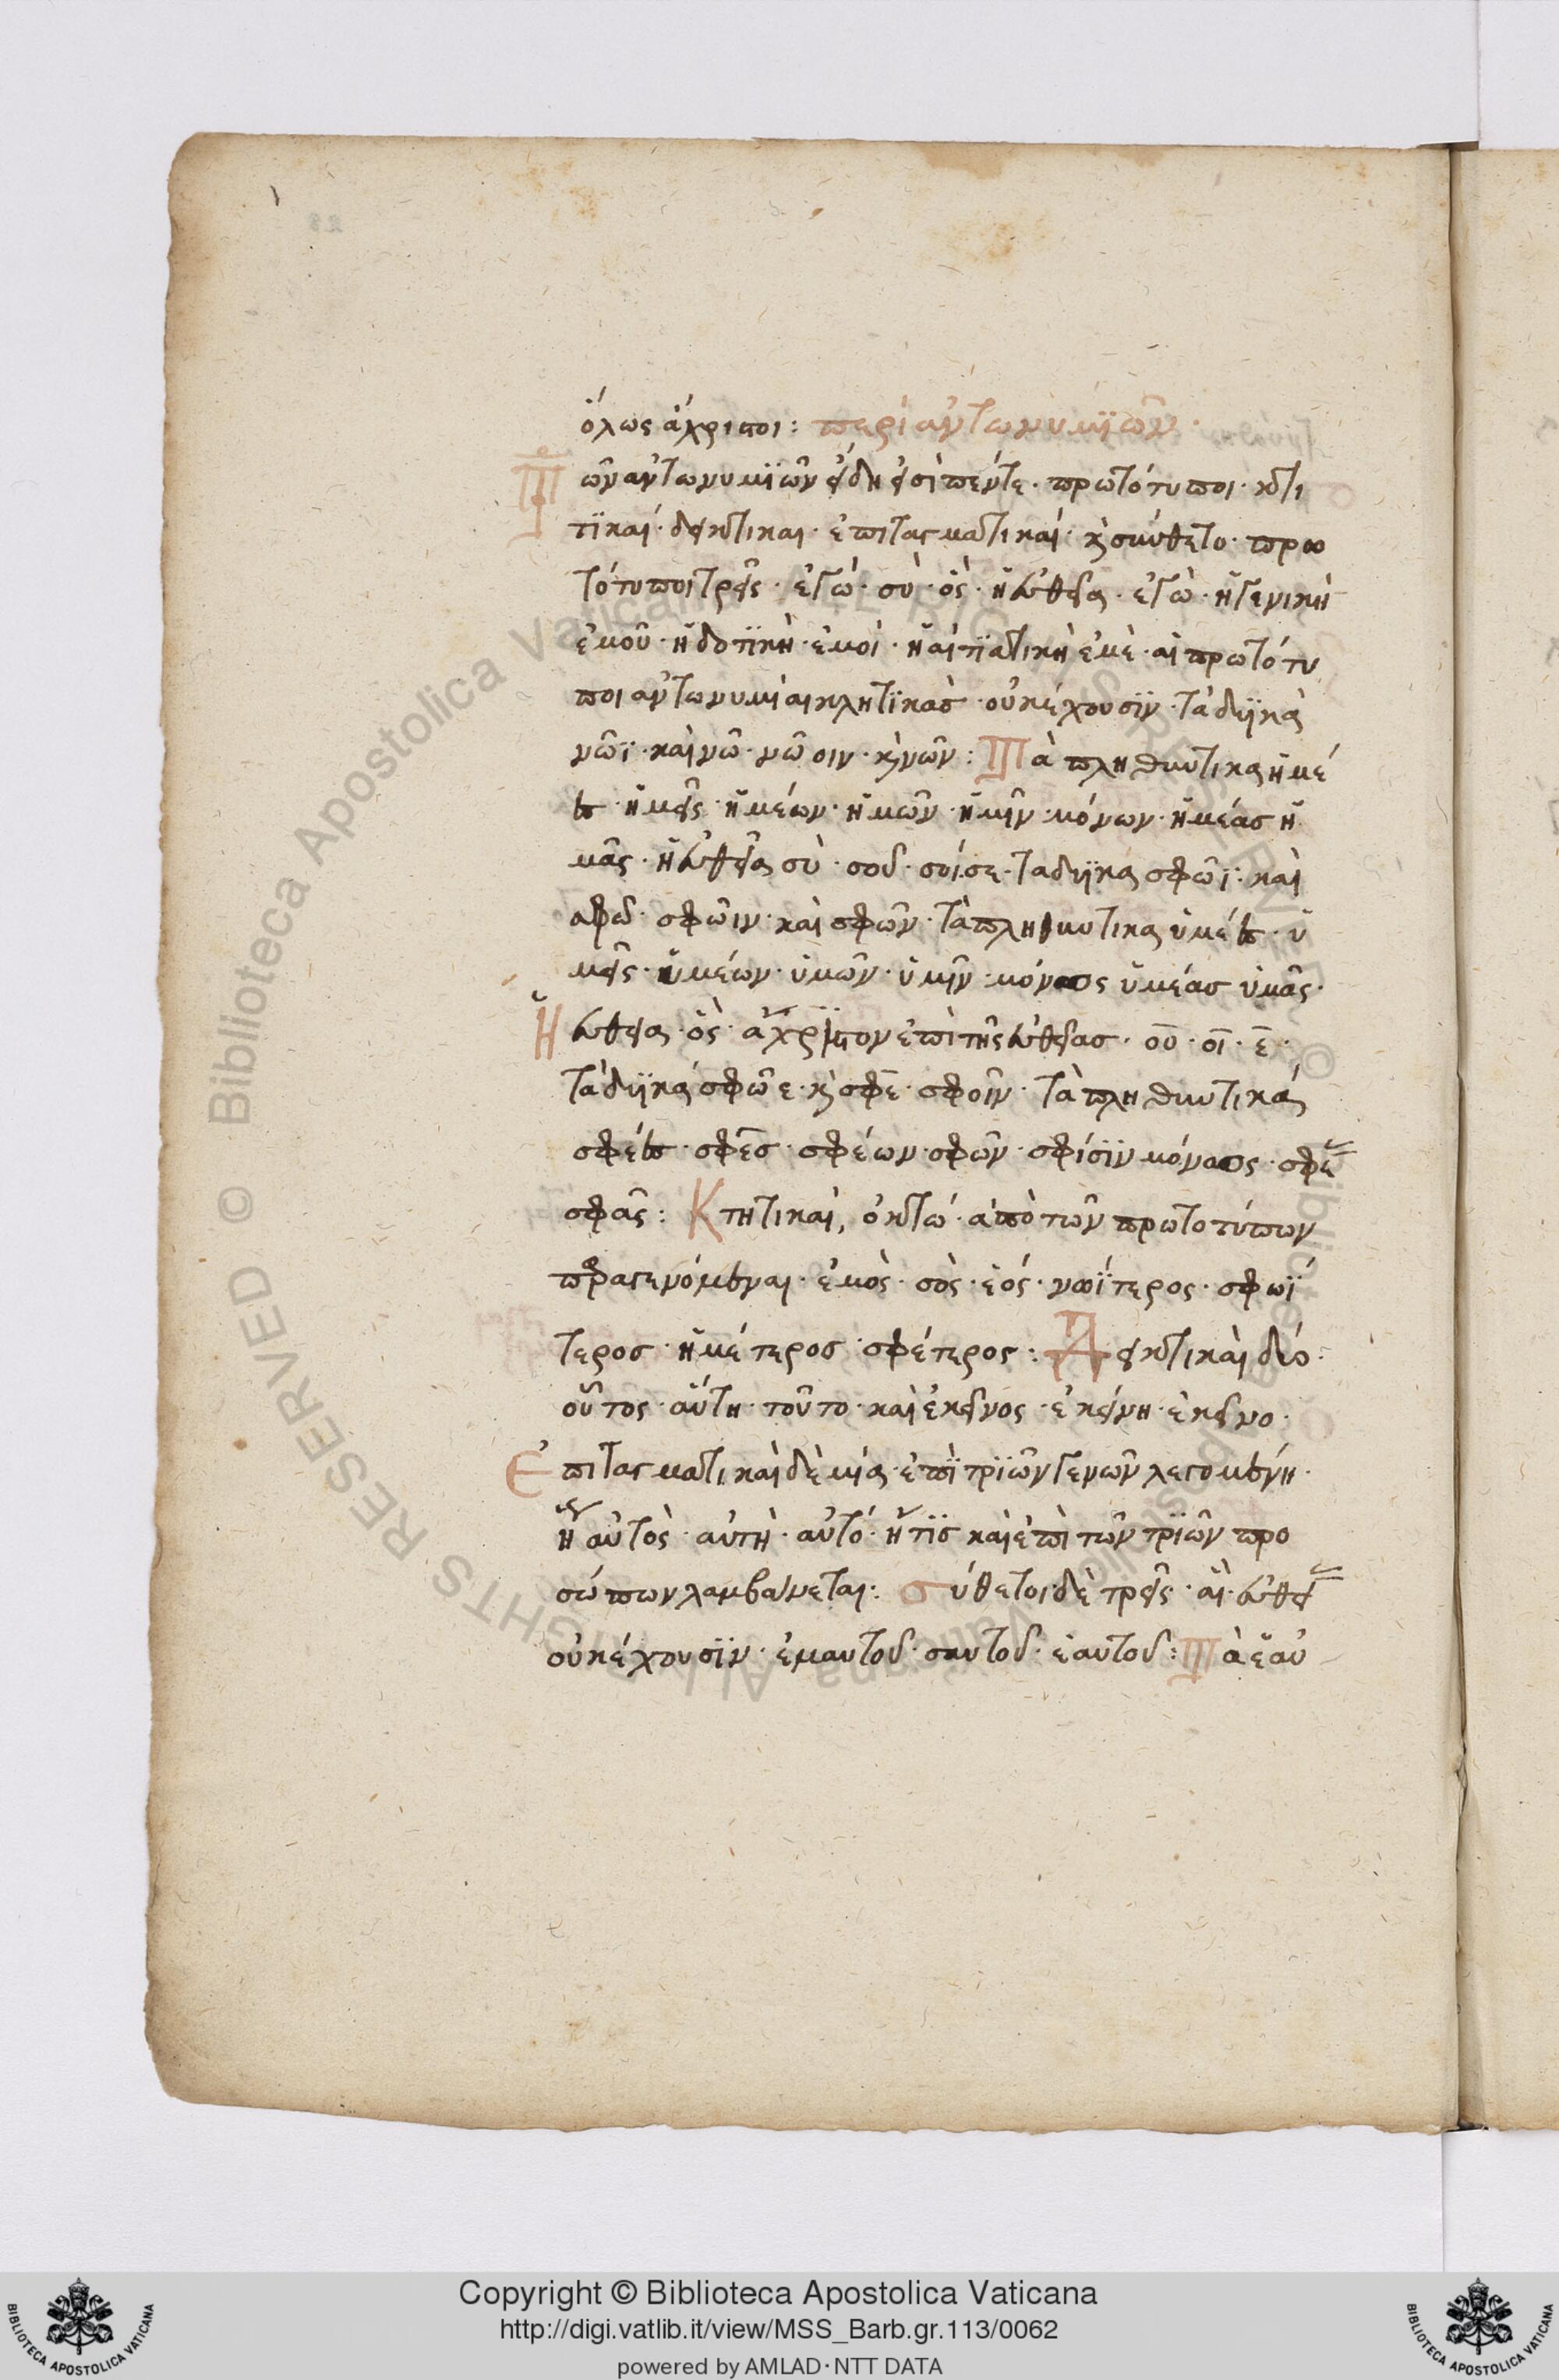 ὅλως ἄχρηστοι: περὶ ἀντωνυμιῶν·
Τῶν ἀντωνυμιῶν εἴδη εἰσὶ πέντε· πρωτότυποι· κτη
τικαί· δεικτικαι· ἐπιταγματικαί· κ σύνθετο· πρω
τότυποι τρεῖς· ἐγὼ· σὺ· ὃς· ἡ εὐθεῖα· ἐγὼ· ἡ γενικὴ
ἐμοῦ· ἡ δοτικὴ· ἐμοὶ· ἡ αἰτιατικὴ ἐμὲ· αἱ πρωτότυ
ποι ἀντωνυμίαι κλητικὰσ· οὐκ ἔχουσϊν· τὰ δυϊκὰ
νῶϊ· καὶ νῶ· νῶοιν· κ νῶν: Τὰ πληθυντικα ἡμέ
ες· ἡμεῖς· ἡμέων· ἡμῶν· ἡμῖν· μόνων· ἡμέασ ἡ
μᾶς· ἡ εὐθεῖα σὺ· σοῦ· σοί· σε· τα δυϊκα σφῶϊ· καὶ
σφω· σφῶιν· καὶ σφῶν· τὰ πληθυντικα ὑμέες· ὑ
μεῖς· ὑμέων· ὑμῶν· ὑμῖν· μόνως ὑμέασ ὑμᾶς·
Ἡ εὐθεῖα· ὃς· ἄχρηστον ἐπὶ τῆς εὐθείασ· οὗ· οἷ· ἕ·
τὰ δυϊκά σφῶε· κ σφὲ· σφοῖν· τὰ πληθυντικά
σφέες· σφεῖσ· σφέων· σφῶν· σφίσϊν μόνως· σφε
σφᾶς: Κτητικαὶ, ὀκτώ· ἀπὸ τῶν πρωτοτύπων
παραγενόμεναι· ἐμὸς· σὸς· ἑός· νωΐτερος· σφωΐ
τεροσ· ἡμέτεροσ· σφέτερος: Δεικτικαὶ δύο·
οὗτος· αὕτη· τοῦτο· καὶ ἐκεῖνος· ἐκείνη· ἐκεῖνο·
Ἐπιταγματικαὶ δὲ μία· ἐπὶ τρϊῶν γενῶν λεγομένη·
ἡ αὐτὸς· αὐτὴ· αὐτό· ἥτϊσ καὶ ἐπὶ τῶν τρϊῶν προ
σώπων λαμβάνεται: σύθετοι δὲ τρεῖς· αἳ· εὐθεῖ
οὐκ έχουσϊν· ἐμαυτοῦ· σαυτοῦ· ἑαυτοῦ: Τὰ ἑαυ
Copyright © Biblioteca Apostolica Vaticana
http://digi.vatlib.it/view/MSS_Barb.gr.113/0062
powered by AMLAD·NTT DATA